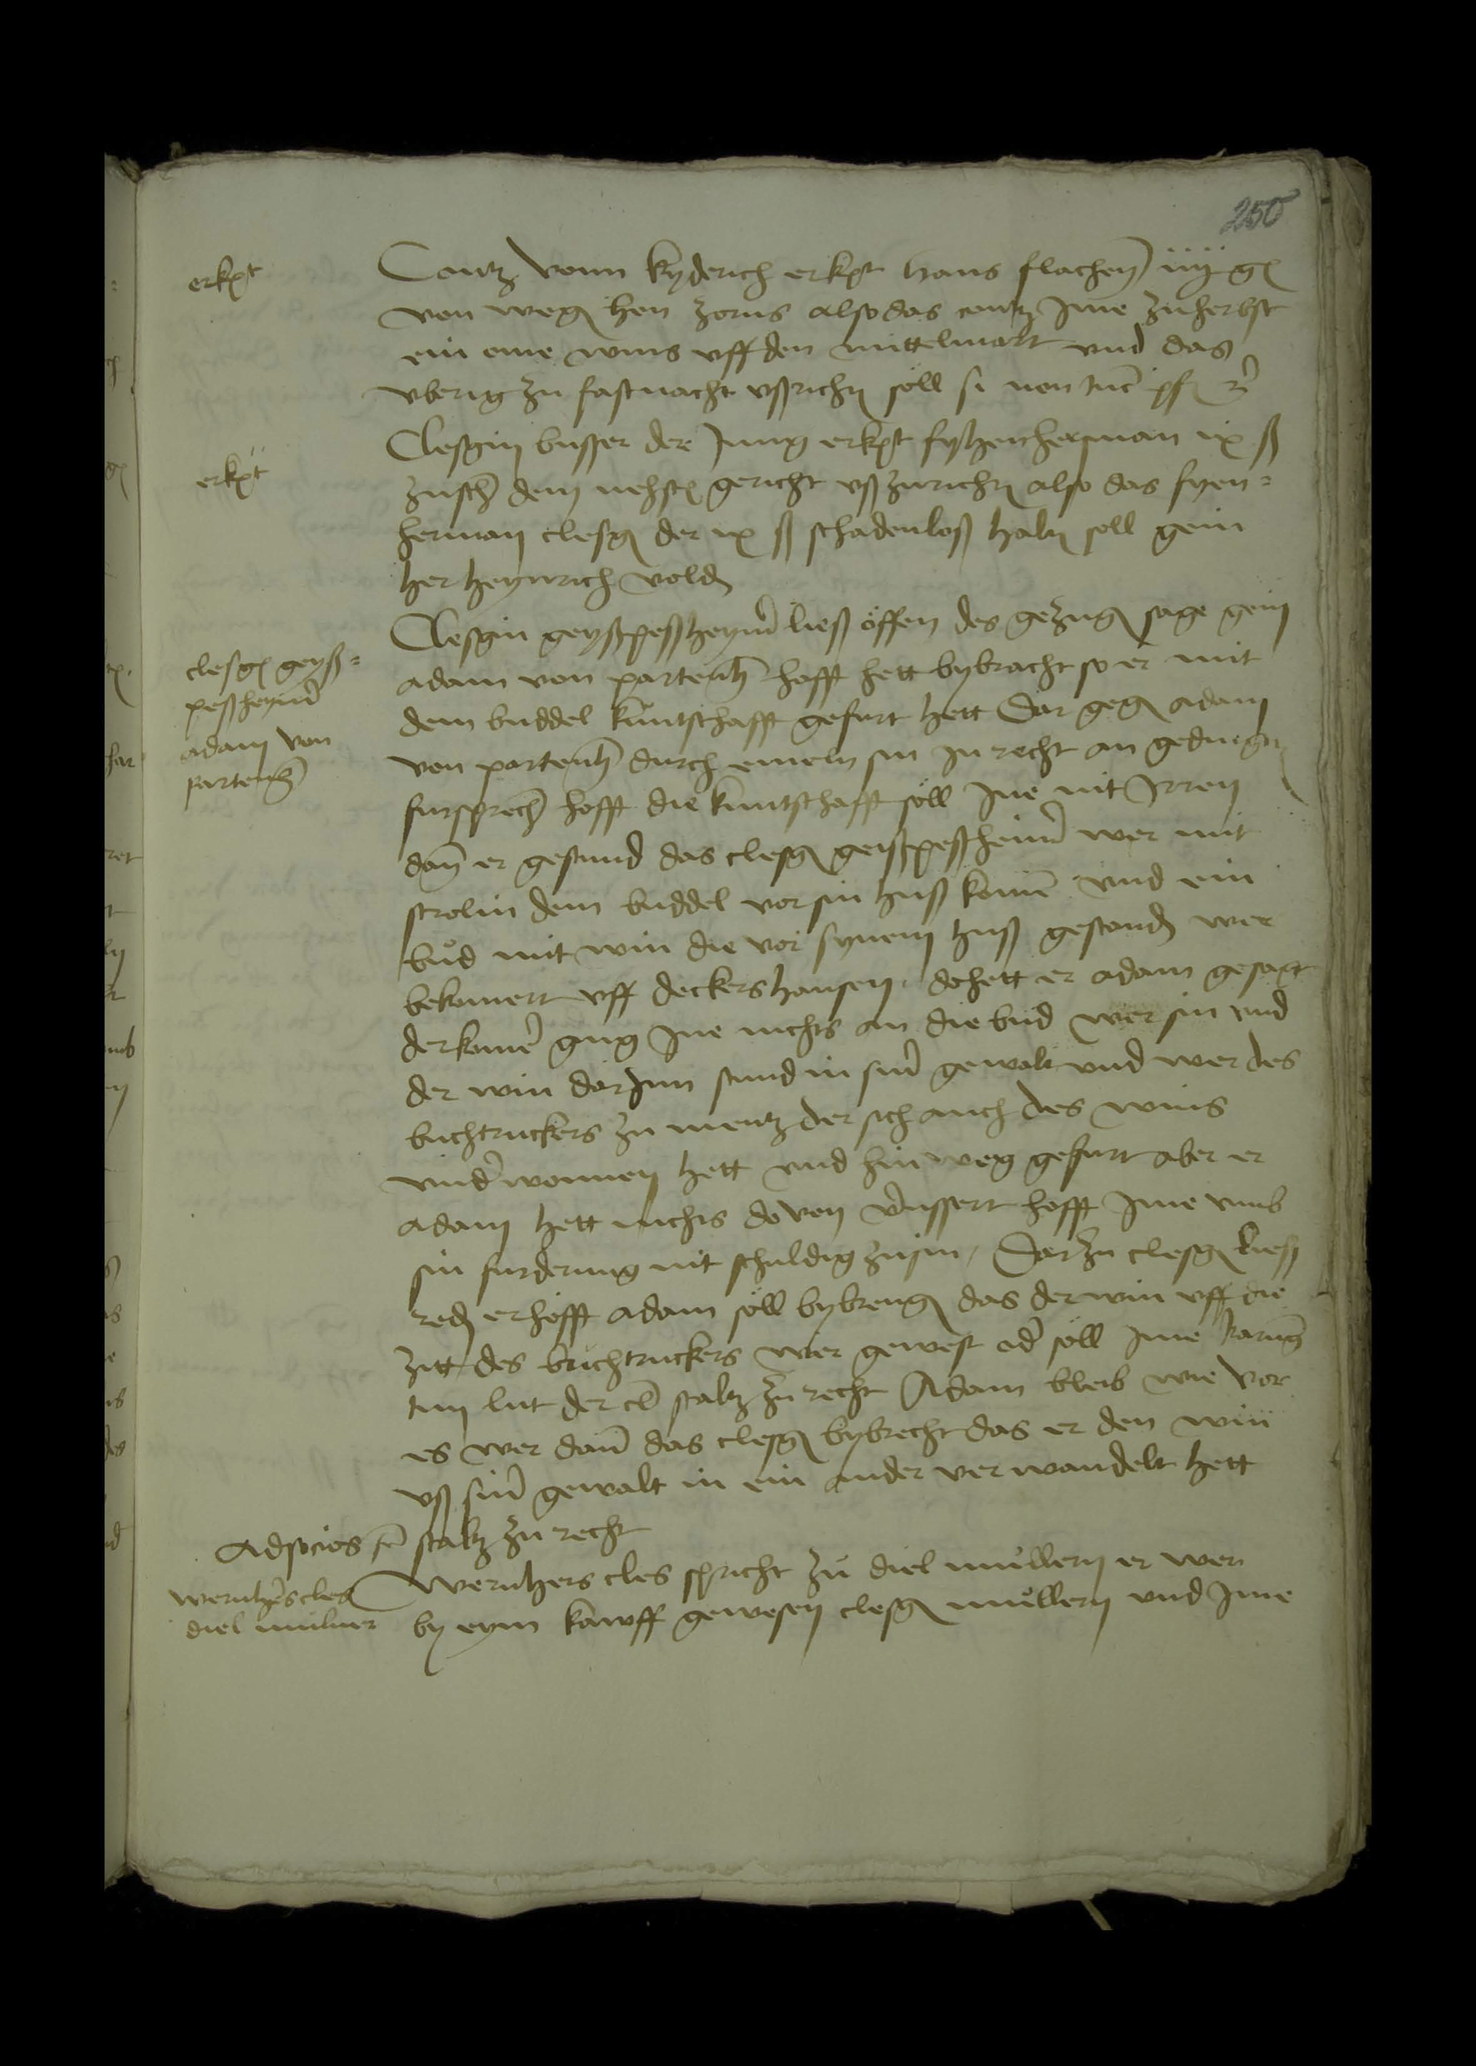 250
erkent
Contz vonn kyderich erkent hans flachen iiij g
von wegen hen zorns also das contz Ime zu herbst
ein ome wins uff den mittelmart und das
uberig zu fastnacht ußrichten soll si non tunc pf
erkent
Clesgin busser der Jung erkent fyhenherman ix ß
zuschen dem nehsten gericht uß zurichten also das fyen=
herman clesgin der ix ß schadenloß halten soll gein
her heynrich volden
clesgin geyß=
peßheymer
adam von
partenheim
Clesgin geyßpeßheymer ließ offen des gezugen sage gein
adam von partenheim hofft hett bybracht so er mit
dem buddel kuntschafft gefurt hett Dar gegen adam
von partenheim durch eineln sin In recht an gedingten
fursprechen hofft die kuntschafft soll Ine nit Irren
dan er gestund das clesgin geißpeßheimer wer mit
strolin dem buddel vor sin huß komen und ein
bud mit win die vor synem huß gestanden wer
bekomert uff deckershansen do hett er adam gesagt
der komer ging Ine nichts an die bud wer sin und
der win dar Inn stund in siner gewalt und wer des
buchtruckers zu mentz der sich auch des wins
underwonnen hett und hinweg gefurt aber er
adam hett nichts do von veussert hofft Ime umb
sin furderung nit schuldig zusin Dar zu clesgin ließ
reden er hofft adam soll bybrengen das der win uff die
zitt des buchtruckers wer gewest oder soll Ime karung
tun lut der clag staltz zu recht Adam bleib wie vor
es wer dann das clesgin bybrecht das er den win
uß siner gewalt in ein ander verwandelt hett
Ad socios staltz zu recht
wernhers cles
diel mulner
Wernhers cles spricht zu diel mullern er wer
by eym kawff gewesen clesgin mullern und Ime